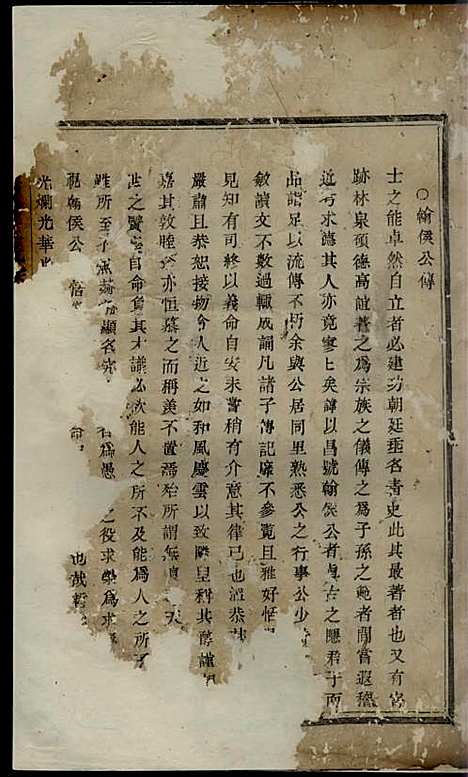 ○翰侯公傳
士之能卓然自立者必建功朝廷垂名青史此其最著者也又有
跡林泉碩德高誼著之爲宗族之儀傳之爲子孫之範者間嘗遐稽
近考求德其人亦竟寥匕矣諱以昌號翰侯公者眞古之隱君子而
品詣足以流傳不朽余與公居同里熟悉公之行事公少
敏讀文不數過輒成誦凡諸子傳記靡不參覽且雅好恬
見知有司終以義命自安未嘗稍有介意其律己也溫恭
嚴肅且恭恕接物令人近之如和風慶雲以致隣里科其醇謹
嘉其敦睦 亦恒慕之而稱羨不置焉殆所謂無 天
世之賢 自命負其才識必欲能人之所不及能爲人之所
所至 顯名 爲愚 之役求榮爲求
視翰侯公 恬 命 也哉
光爛光華